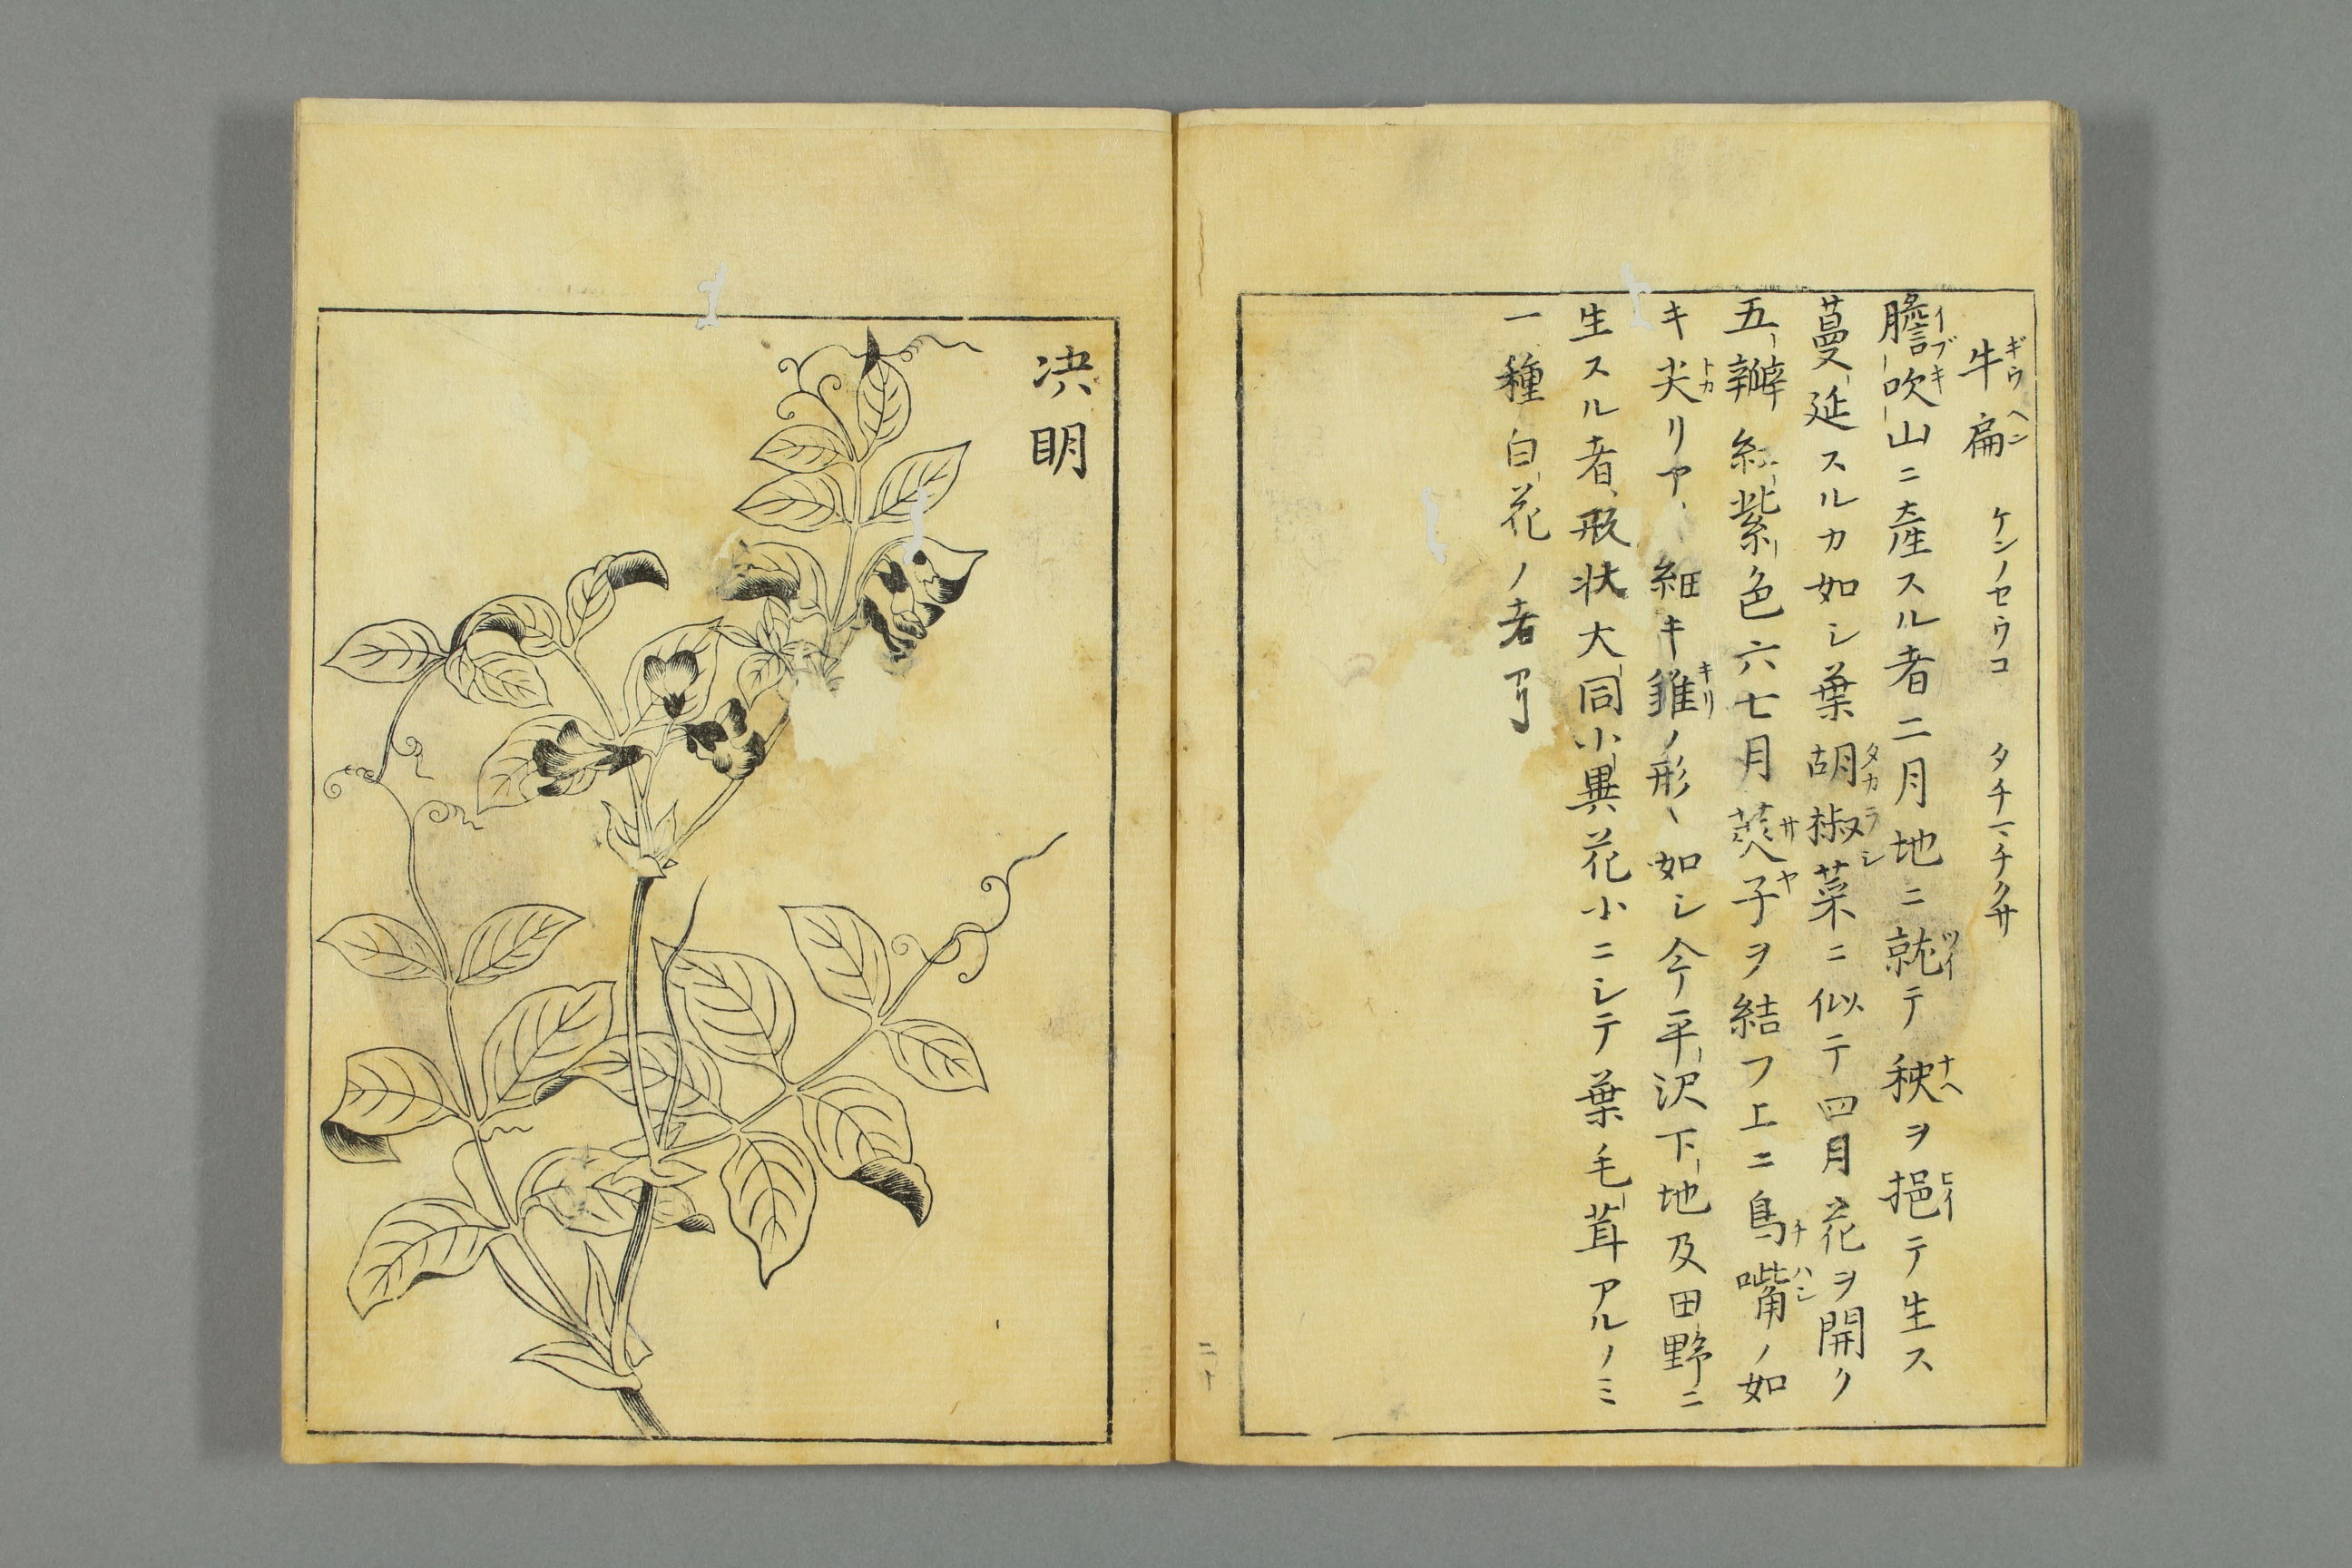 牛扁 ケンノセウコ タチマチクサ
ギウヘン
膽吹山ニ產スル者二月地ニ就テ秧ヲ挹テ生ス
イブキ ツイ ナヘ ヒイ
蔓延スルカ如シ葉胡椒菜ニ似テ四月花ヲ開ク
タカラシ
五瓣紅紫色六七月莢子ヲ結フ上ニ鳥嘴ノ如
サヤ チハシ
キ尖リア 細キ錐ノ形、如シ今平沢下地及田野ニ
トカ キリ
生スル者形状大同小異花小ニシテ葉毛茸アルノミ
一種白花ノ者アリ
二十
决明